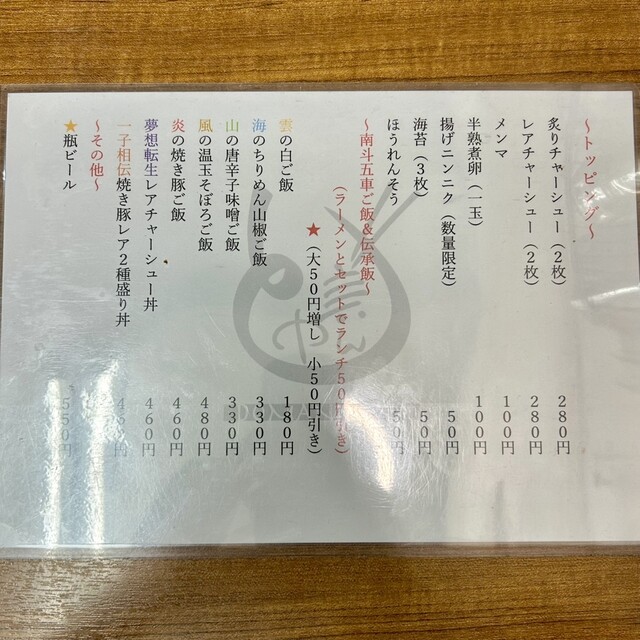 ～トッピング～
炙りチャーシュー（２枚） 280円
レアチャーシュー（２枚） 280円
メンマ 100円
半熟煮卵（一玉） 100円
揚げニンニク（数量限定） 50円
海苔（３枚） 50円
ほうれんそう 50円
～南斗五車ご飯＆伝承飯～
（ラーメンとセットでランチ５０円引き）
★（大５０円増し 小５０円引き）
雲の白ご飯 180円
海のちりめん山椒ご飯 330円
山の唐辛子味噌ご飯 330円
風の温玉そぼろご飯 480円
炎の焼き豚ご飯 460円
夢想転生レアチャーシュー丼 460円
一子相伝焼き豚レア２種盛り丼
～その他～
★瓶ビール 550円